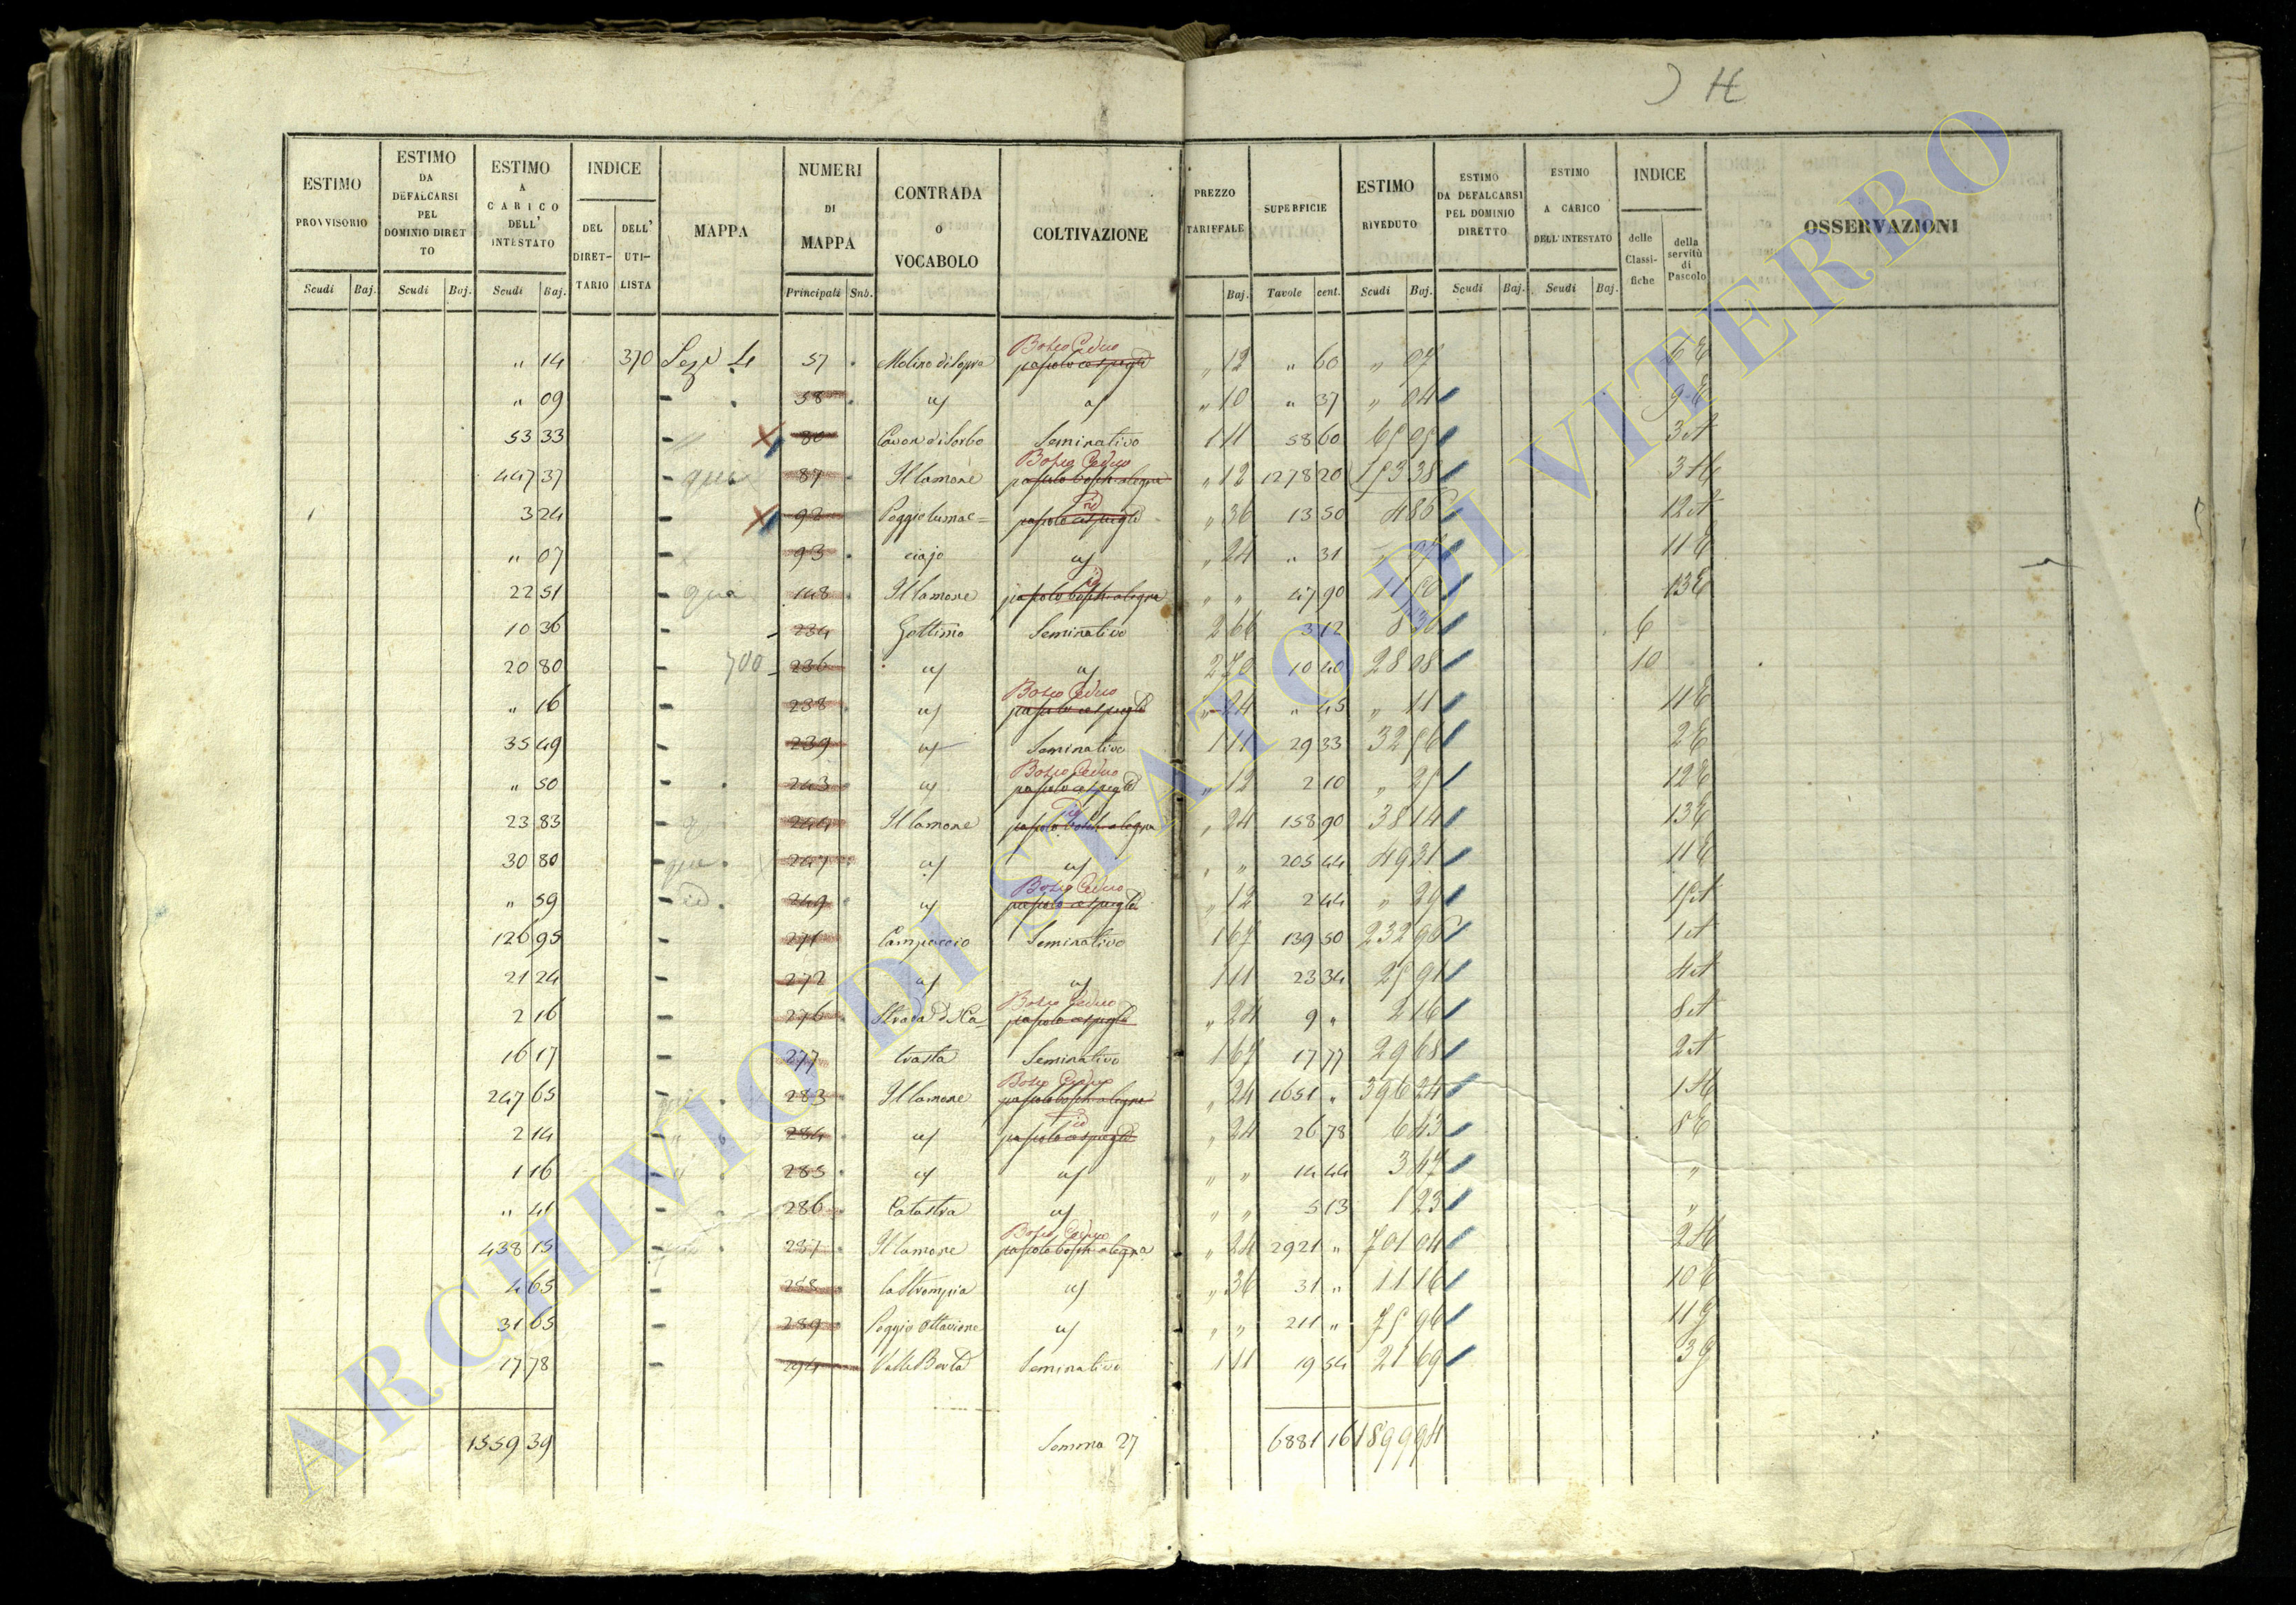 H
ESTIMO PROVVISORIO Scudi Baj.
ESTIMO DA DEFALCARSI PEL DOMINIO DIRETTO Scudi Baj.
ESTIMO A CARICO DELL' INTESTATO Scudi Baj.
INDICE DEL DIRETTARIO DELL' UTILISTA
MAPPA
NUMERI DI MAPPA Principali Sub.
CONTRADA O VOCABOLO
COLTIVAZIONE
PREZZO TARIFFALE Baj.
SUPERFICIE Tavole cent.
ESTIMO RIVEDUTO Scudi Baj.
ESTIMO DA DEFALCARSI PEL DOMINIO DIRETTO Scudi Baj.
ESTIMO A CARICO DELL' INTESTATO Scudi Baj.
INDICE delle Classifiche della servitù di Pascolo
OSSERVAZIONI
Bosco Ceduo
" 14 370 Sez. 4 57 Molino di Sopra pascolo cespugl. " 12 " 60 " 07 6 E
" 09 - 58 id id " 10 " 37 " 04 9 E
53 33 - 80 Cavon di Sorbo Seminativo 1 11 58 60 65 05 3 A
Bosco Ceduo
447 37 - 87 Il lamone pascolo bosch. a legna " 12 1278 20 153 38
id
3 24 - 92 Poggio lumac= pascolo cespugl. " 36 13 50 4 86 12 A
" 07 - 93 ciajo id " 24 " 31 " 07 11 E
id
22 51 - qua 148 Il lamone pascolo bosch. a legna " " 47 90 13 E
10 36 234 Gottimo Seminativo 2 66 3 12 8 30 6
20 80 - 700 236 id id 2 70 10 40 28 08 10
Bosco Ceduo
" 16 - 238 id pascolo cespugl. " 24 " 45 " 11 11 E
35 49 - 239 id Seminativo 1 11 29 33 32 56 2 E
Bosco Ceduo
" 50 - 243 id pascolo cespugl. " 12 2 10 " 25 12 E
id
23 83 - 244 Il lamone pascolo bosch. a legna " 24 158 90 38 14 13 E
30 80 - 247 id id " " 205 44 49 31 11 E
Bosco Ceduo
" 59 - id. 249 id pascolo cespugl. " 12 2 44 " 29
126 95 - 271 Campaccio Seminativo 1 67 139 50 232 96 1 A
21 24 - 272 id id 1 11 23 34 25 91 4 A
Bosco Ceduo
2 16 - 276 Strada di Ca pascolo cespugl. " 24 9 " 2 16 8 A
16 17 - 277 trasta Seminativo 1 67 17 77 29 68 2 A
Bosco Ceduo
247 65 - 283 Il lamone pascolo bosch. a legna " 24 1651 " 396 24
id
2 14 - 284 id pascolo cespugl. " 24 26 78 6 43 8 E
1 16 - 285 id id " " 14 44 3 47 "
" 41 - 286 Catastra id " " 5 13 1 23 "
Bosco Ceduo
438 15 - 287 Il lamone pascolo bosch. a legna " 24 2921 " 701 04
4 65 - 288 la Strompia id " 36 31 " 11 16 10 E
31 65 - 289 Poggio Ottavione id " " 211 " 75 96
17 78 - 294 Valle Berta Seminativo 1 11 19 54 21 69
1559 39 Somma 27 6881 16 1899 94
ARCHIVIO DI STATO DI VITERBO